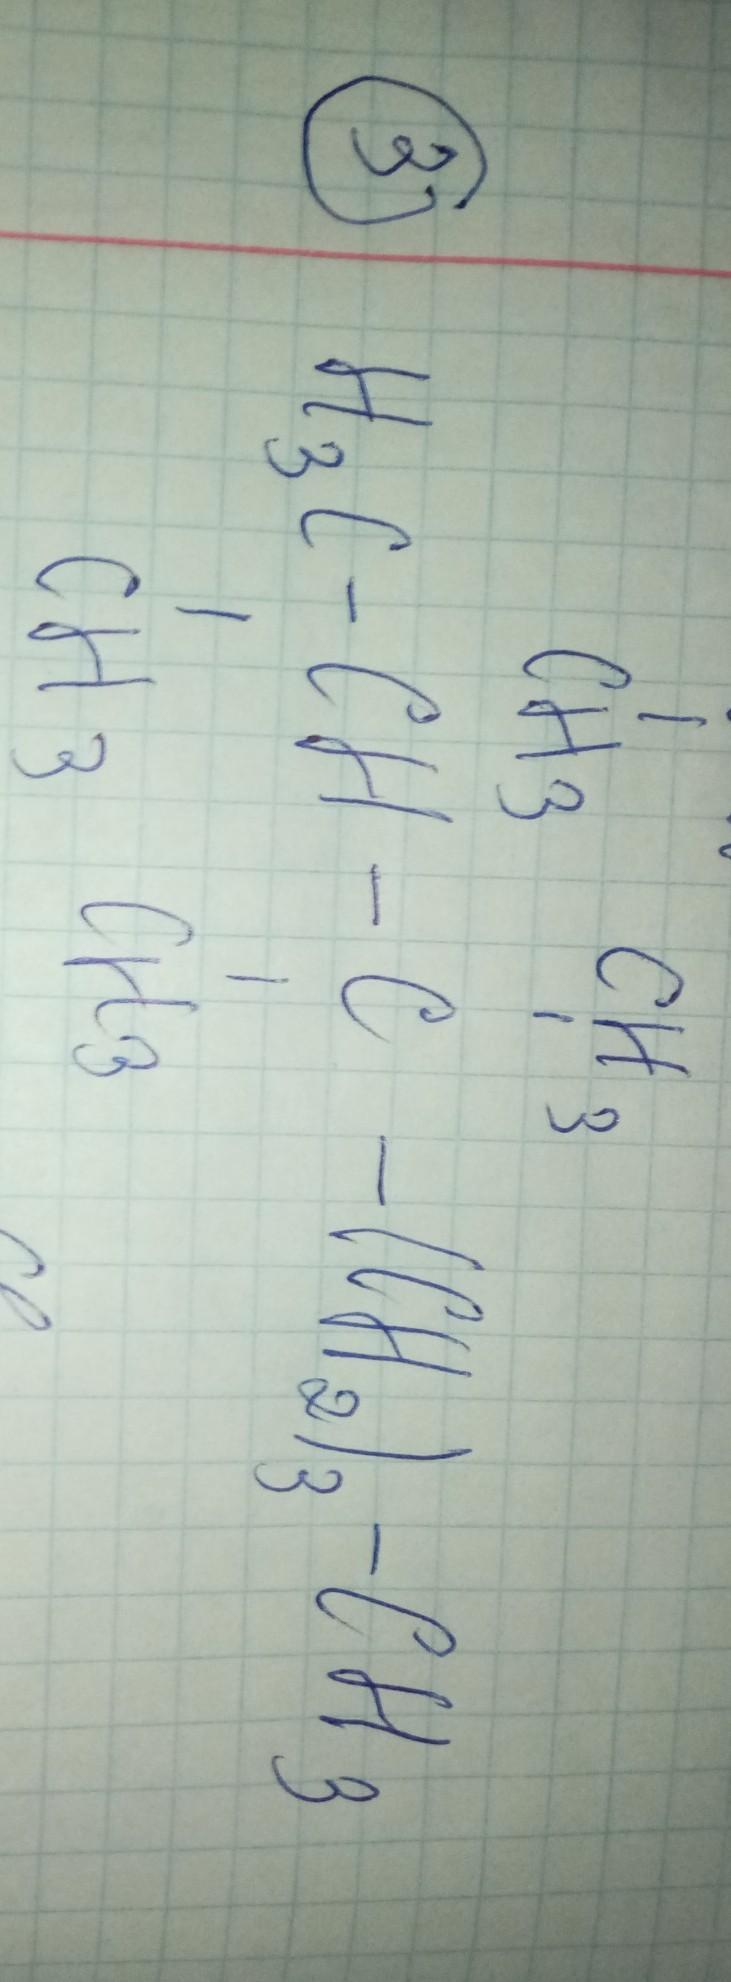 CH3 CH3
3) H3C-CH-C-(CH2)3-CH3
CH3 CH3